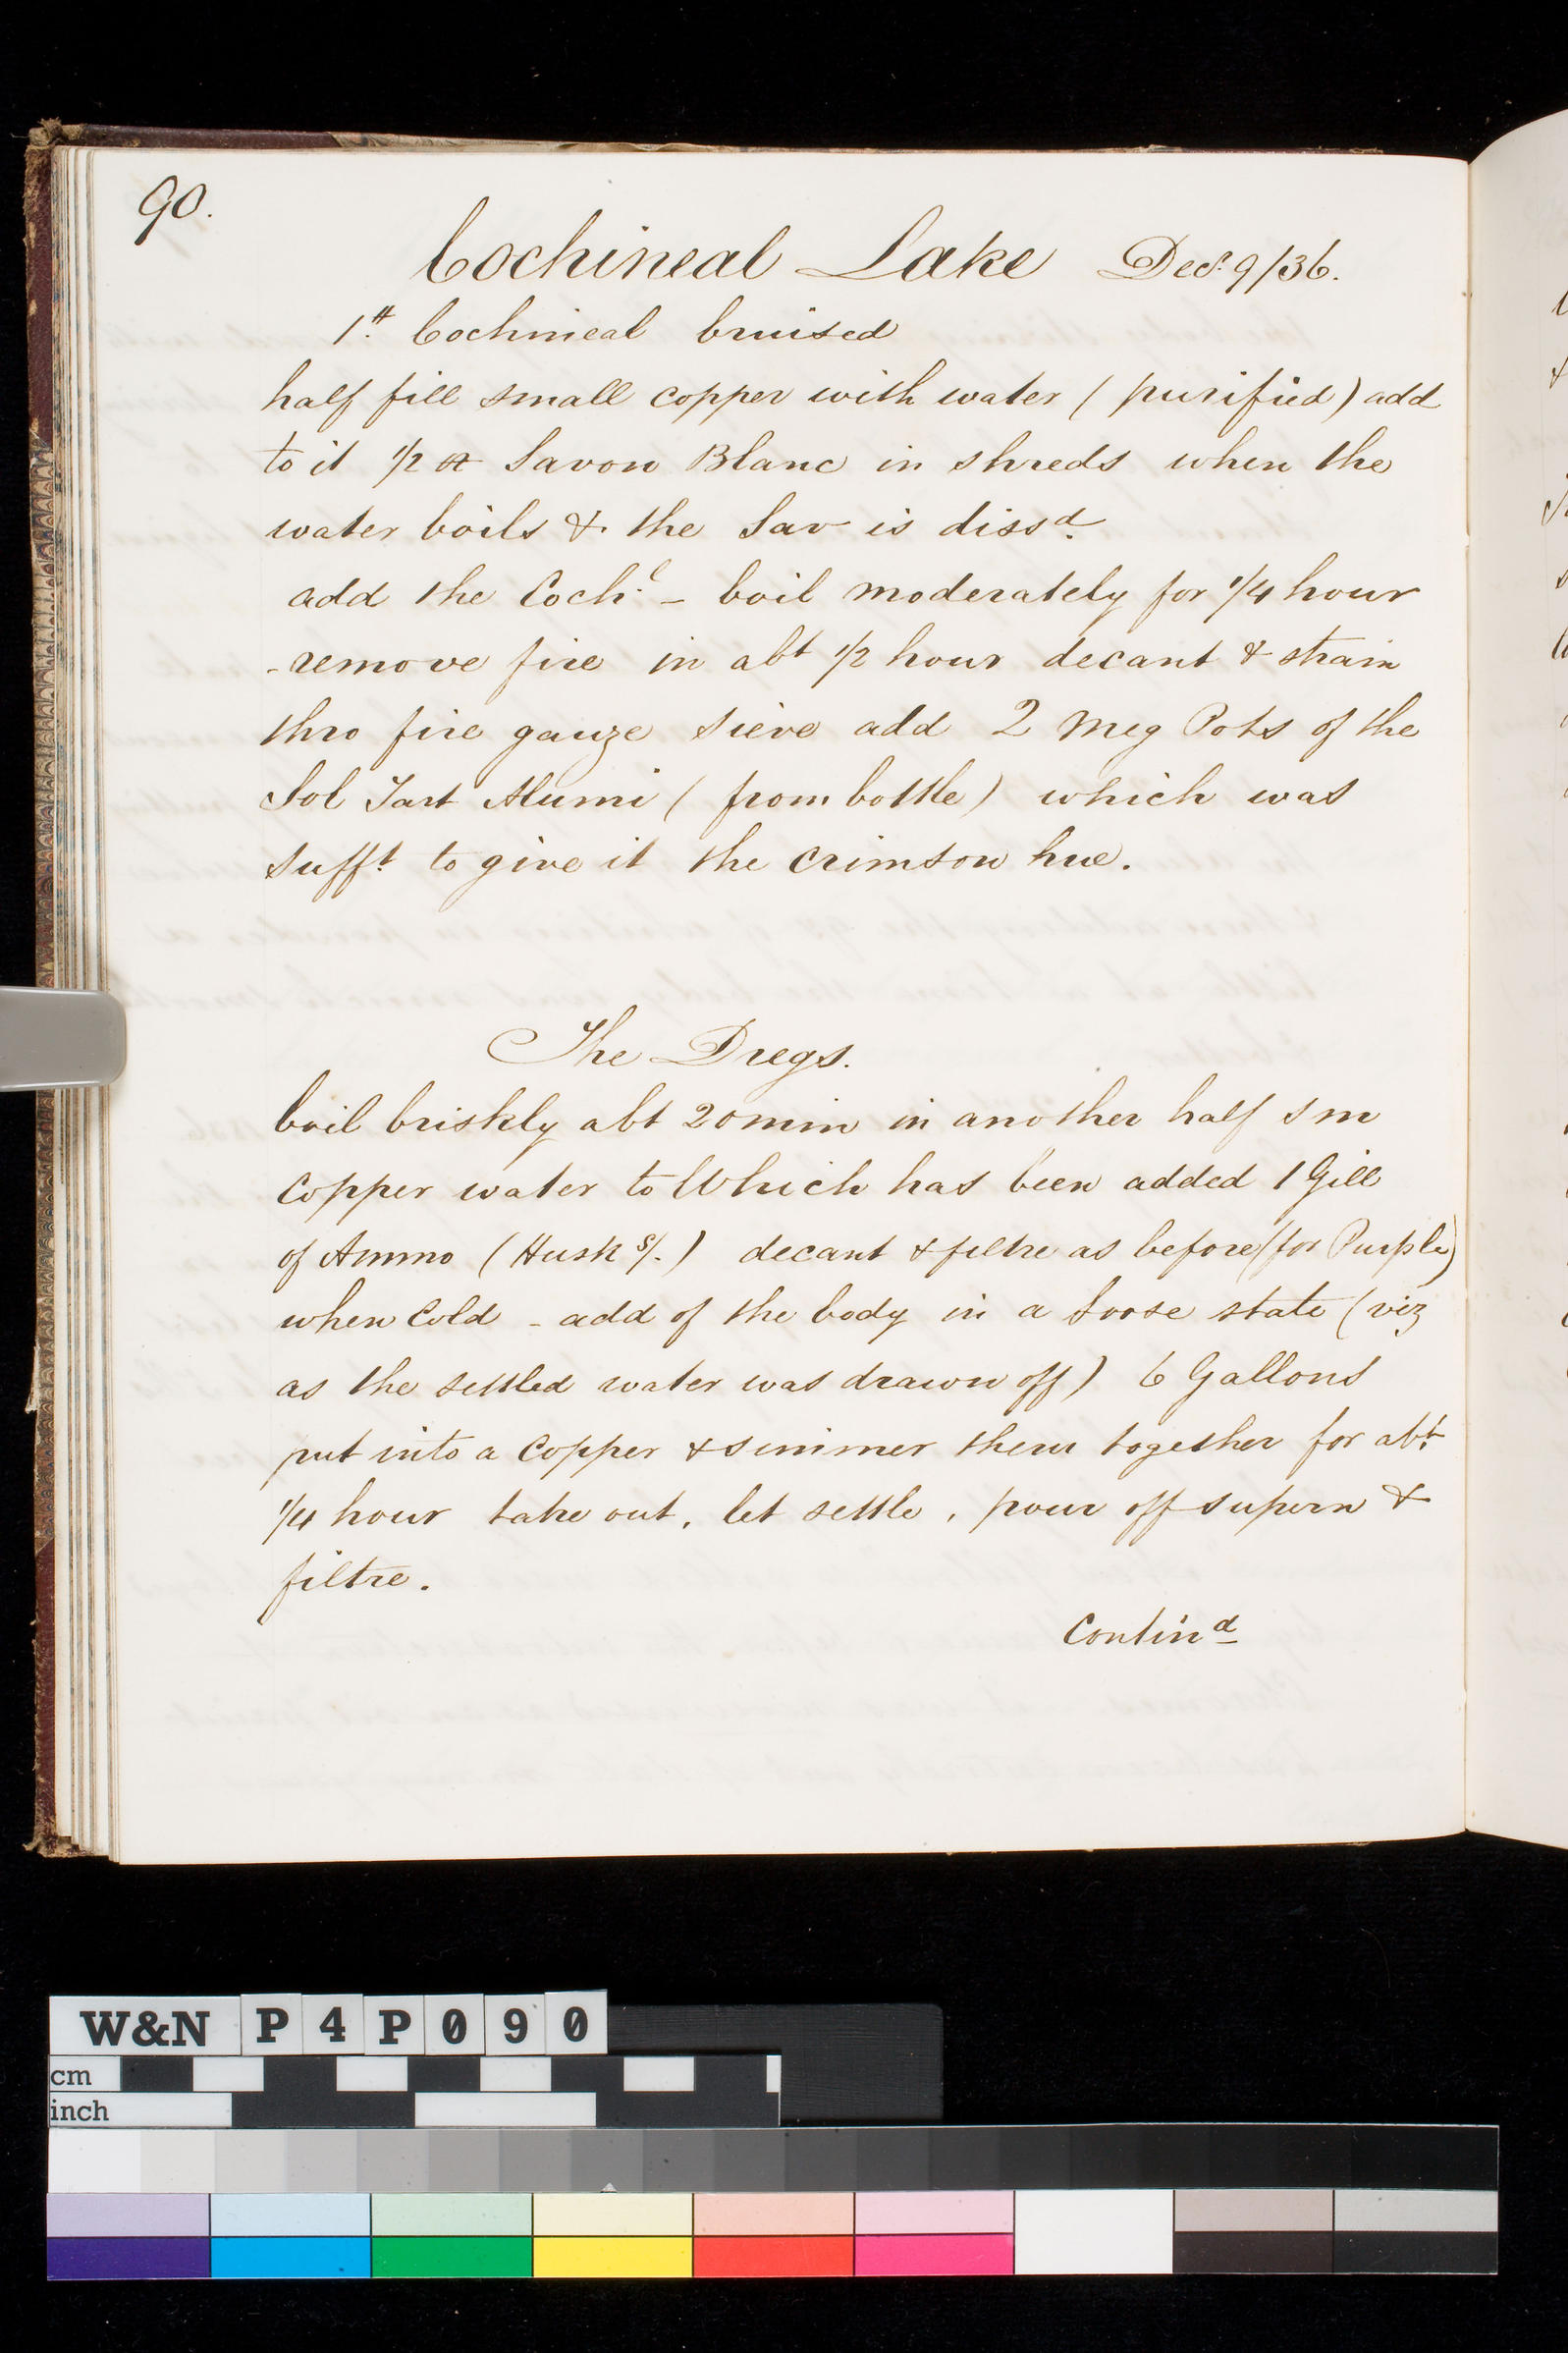 90.
Cochineal Lake Decr. 9/36.
1 lb. Cochineal bruised
half fill small copper with water (purified) add
to it 1/2 oz Savon Blanc in shreds when the
water boils & the Sav is dissd.
add the Cochl. - boil moderately for 1/4 hour
- remove fire in abt 1/2 hour decant & strain
thro fine gauze sieve add 2 Meg Pots of the
Sol Tart Alumi (from bottle) which was
Sufft. to give it the crimson hue.
The Dregs.
boil briskly abt 20 min in another half Sm
Copper water to Which has been added 1 Gill
of Ammo (Husks/.) decant & filtre as before (for Purple)
when Cold - add of the body in a loose state (viz
as the settled water was drawn off) 6 Gallons
put into a Copper & simmer them together for abt.
1/4 hour take out, let settle, pour off supern &
filtre.
Contind
W&N P4P090
cm
inch